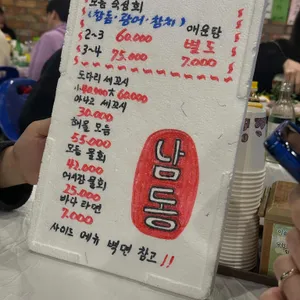 모듬 숙성회
(참돔·광어·참치)
2~3 60.000
3~4 75.000
매운탕
별도
7.000
도다리 세꼬시
小40.000 大60.000
아나고 세꼬시
30.000
해물 모듬
55.000
모듬 물회
42.000
야채 물회
25.000
바다 라면
7.000
사이드 메뉴 벽면 참고!!
남동